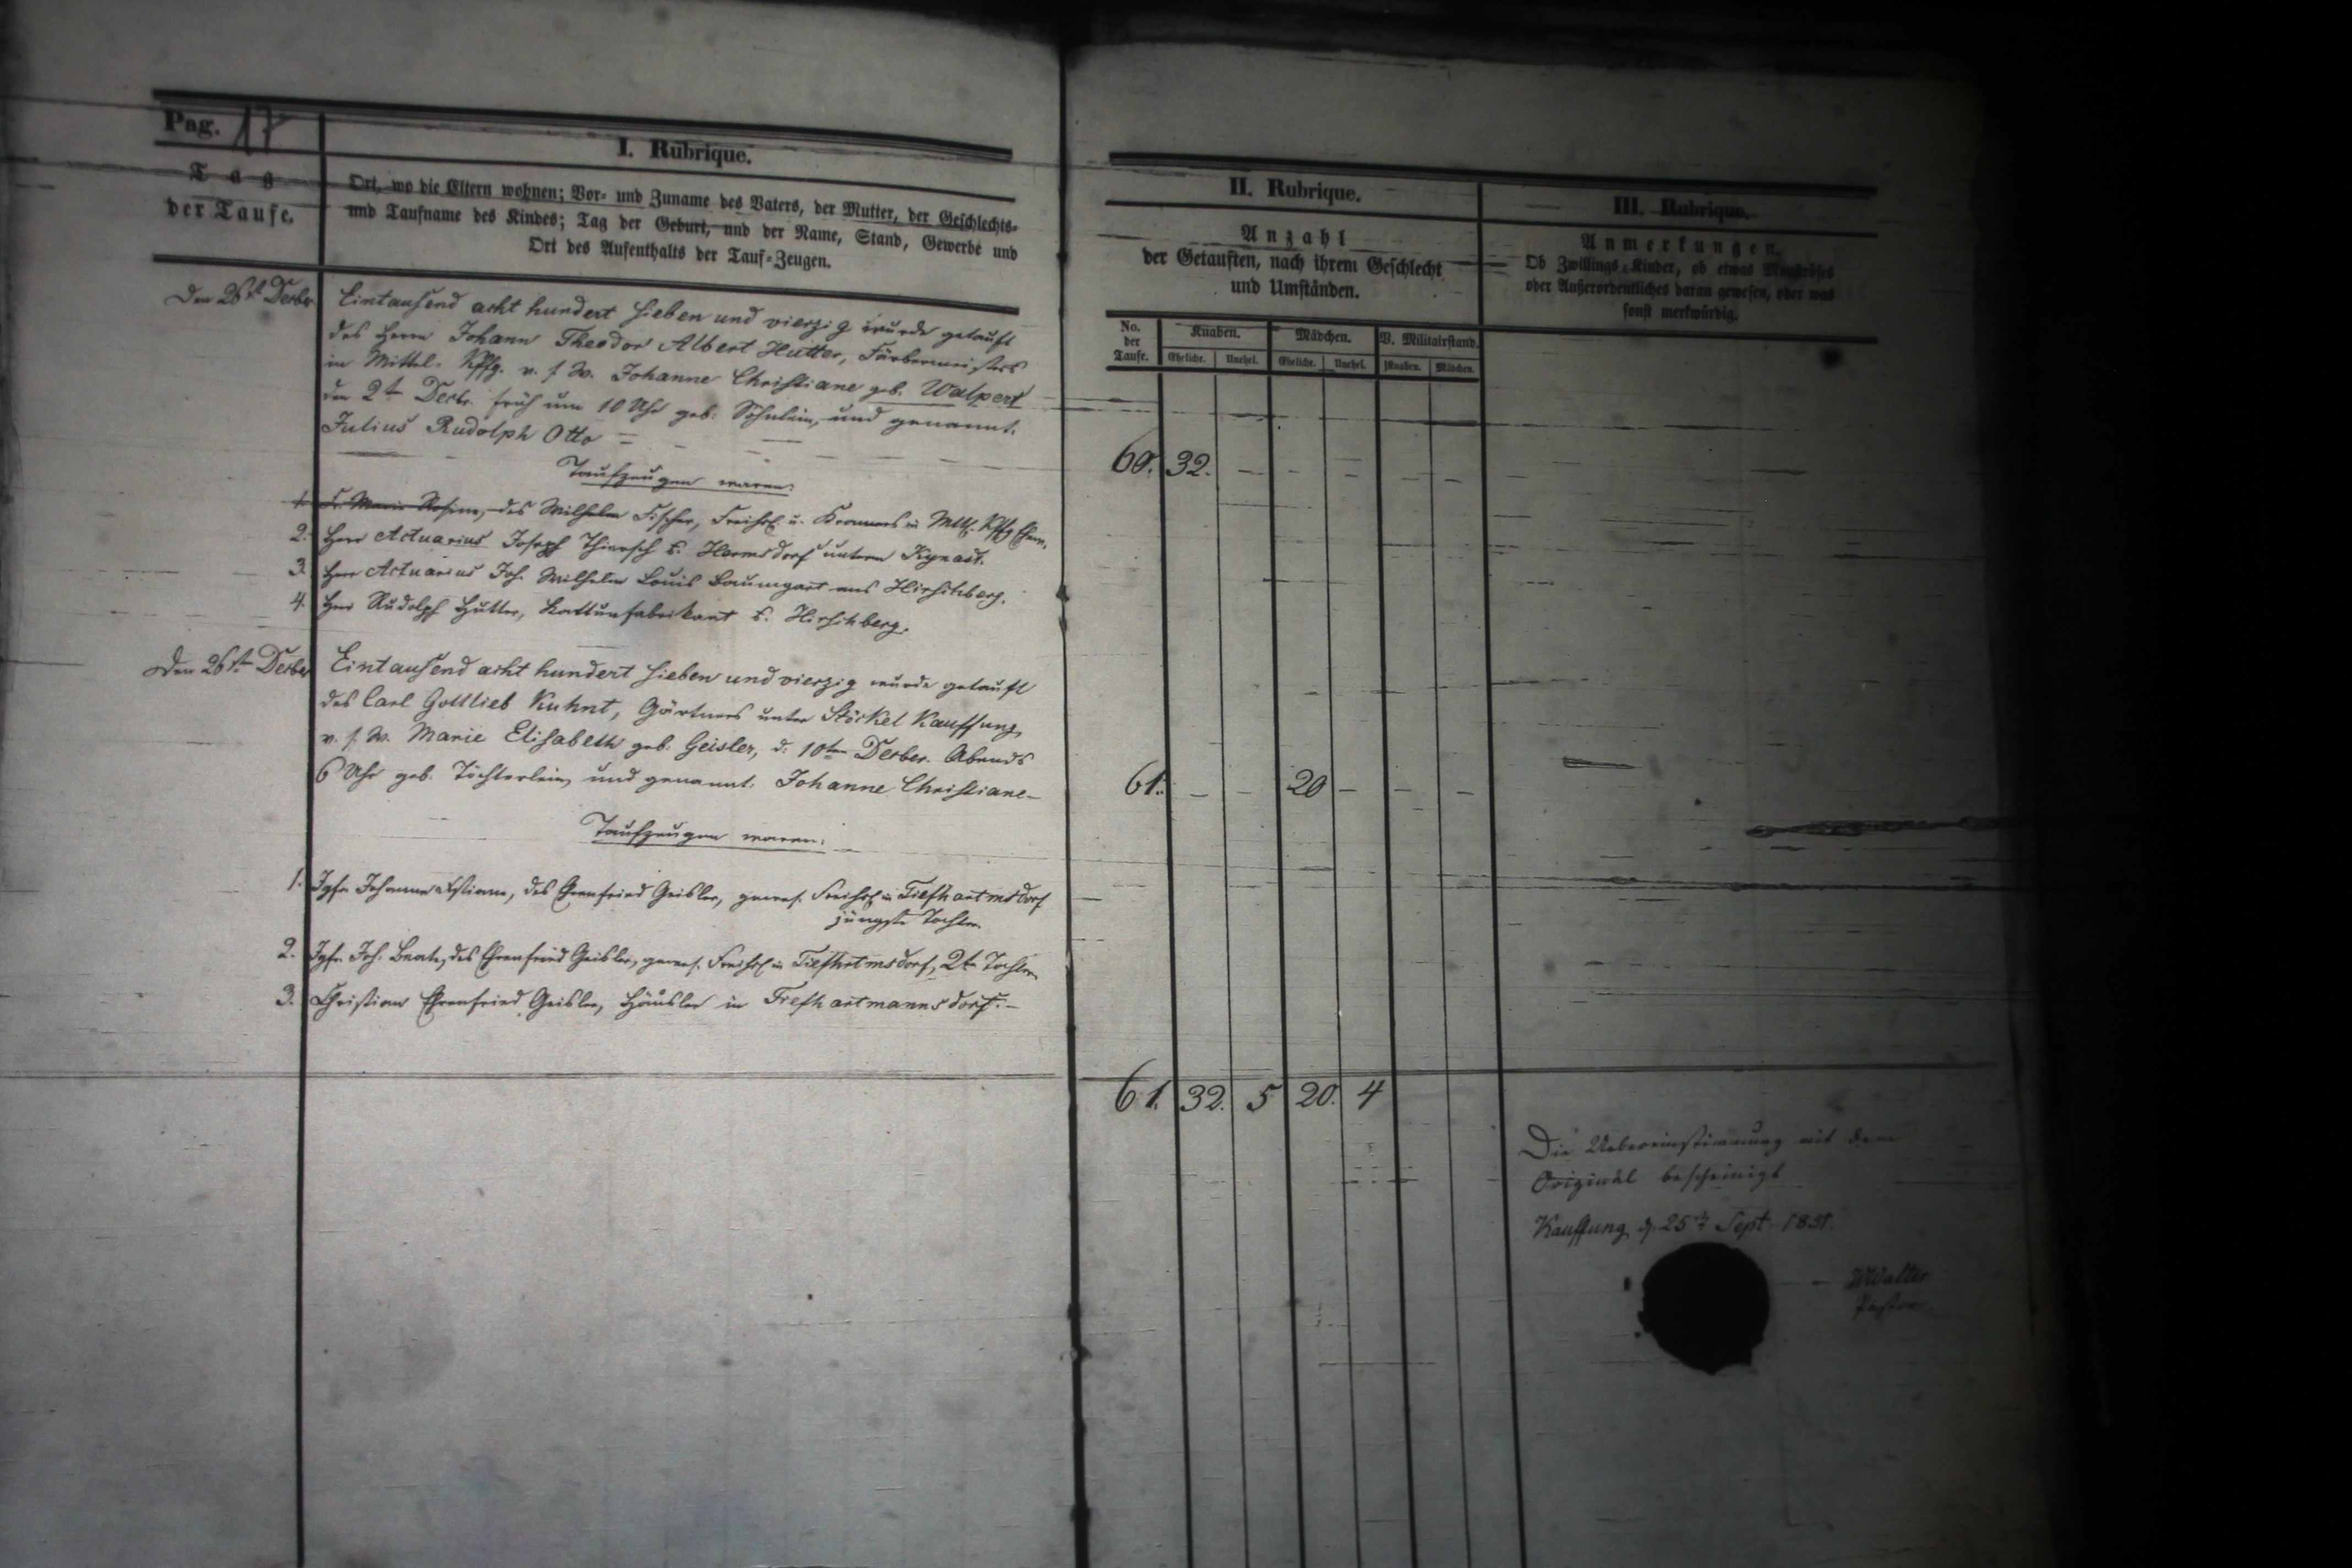 Pag. 17
I. Rubrique.
Tag
der Taufe.
Ort, wo die Eltern wohnen; Vor- und Zuname des Vaters, der Mutter, der Geschlechts-
und Taufname des Kindes; Tag der Geburt, und der Name, Stand, Gewerbe und
Ort des Aufenthalts der Tauf-Zeugen.
Den 26st Decbr.
Eintausend acht hundert sieben und vierzig wurde getauft
des Herrn Johann Theodor Albert Hutter, Färbermeisters
in Mittel-Kffg. v. s. W. Johanne Christiane geb. Walpert
den 2ten Decbr. früh um 10 Uhr geb. Söhnlein, und genannt.
Julius Rudolph Otto
Taufzeugen waren:
1. Fr. Marie Rosine, des Wilhelm Fischer, Freihsl. u. Kramers in Mttl. Kffg
2. Herr Actuarius Joseph Thiersch z. Hermsdorf unterm Kynast.
3. Herr Actuarius Joh. Wilhelm Louis Baumgart aus Hirschberg.
4. Herr Rudolph Hutter, Kattunfabrikant z. Hirschberg.
Den 26ste Decber
Eintausend acht hundert sieben und vierzig wurde getauft
des Carl Gottlieb Kuhnt, Gärtners unter Stöckel Kauffung
v. s. W. Marie Elisabeth geb. Geisler, d. 10ten Decber. Abends
6 Uhr geb. Töchterlein, und genannt. Johanne Christiane –
Taufzeugen waren:
1. Jgfr. Johanne Christiane, des Ehrenfried Geisler, gewes. Freihsl. in Tiefhartmsdorf
jüngste Tochter.
2. Jgfr. Joh. Beate, des Ehrenfried Geisler, gewes. Freihsl. in Tiefhrtmsdorf, 2te Tochter
3. Christian Ehrenfried Geisler, Häusler in Tiefhartmannsdorf. –
II. Rubrique.
Anzahl
der Getauften, nach ihrem Geschlecht
und Umständen.
No. der Taufe.
Knaben. Mädchen. V. Militairstand.
Eheliche. Unehel. Eheliche. Unehel. Knaben. Mädchen.
60. 32. – – – – –
61. – – 20 – – –
61. 32. 5 20. 4
III. Rubrique.
Anmerkungen.
Ob Zwillings-Kinder, ob etwas Monströses
oder Außerordentliches daran gewesen, oder was
sonst merkwürdig.
Die Uebereinstimmung mit dem
Original bescheinigt
Kauffung d. 25st Sept. 1851.
Walter
Pastor